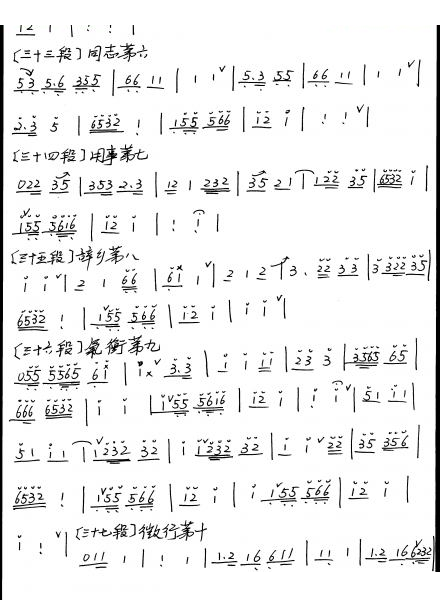 12 1 | ! ! |
〔三十三段〕同志第六
53 5.6 355 | 66 11 | 1 1 | 5.3 55 | 66 11 | 1 1 |
2.3 5 | 6532 ! | 155 566 | 12 i | ! ! |
〔三十四段〕用事第七
022 35 | 353 2.3 | 12 1 232 | 35 21 | 122 35 | 6532 i |
155 5616 | 12 i | ! i |
〔三十五段〕辞乡第八
i i | 2 1 66 | 61 1 | 2 1 2 | 3. 22 33 | 3 322 35 |
6532 ! | 155 566 | 12 i | i i |
〔三十六段〕氣衝第九
055 5565 6i | i x 3.3 | i i ii | 23 3 | 3565 65 |
666 6532 | i i | i 155 5616 | 12 i | ! i | 51 i1 |
51 i1 | 1232 32 | i 1232 32 | i i 22 | 35 356 |
6532 ! | 155 566 | 12 i | i 155 566 | 12 i |
i ! | 〔三十七段〕微行第十
011 1 | ! 1 | 1.2 16 611 | 11 1 | 1.2 16 6232 |